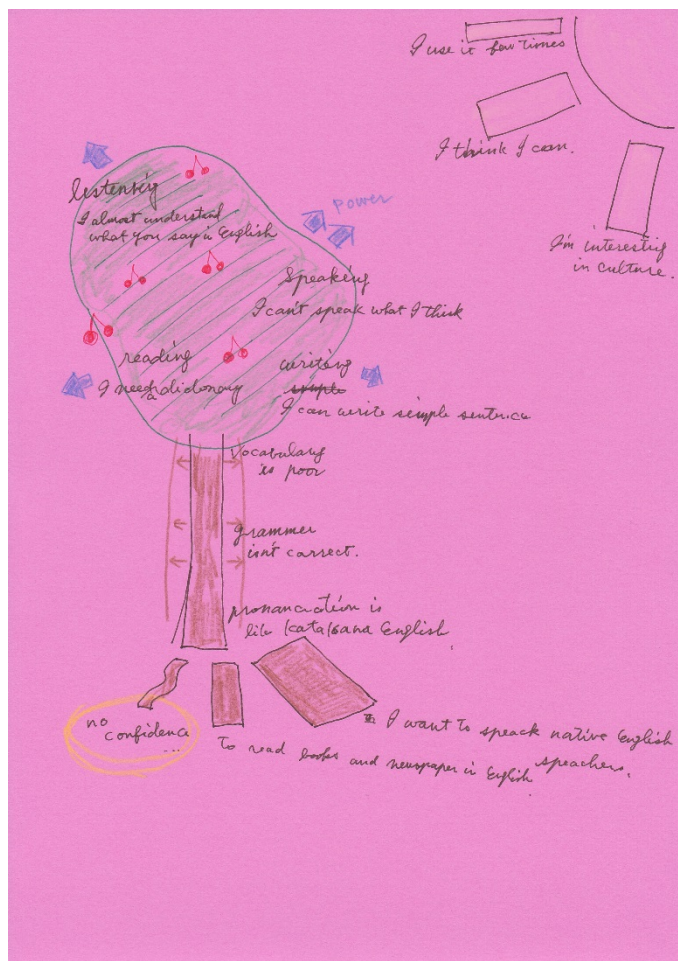 I use it few times
I think I can.
I'm interesting
in culture.
Power
listening
I almost understand
what you say in English
Speaking
I can't speak what I think
reading
I need a dictionary
writing
simple
I can write simple sentence
Vocabulary
is poor
grammer
isn't carrect.
pronanciation is
like katakana English.
no
confidence
...
I want to speack native English
speachers.
To read books and newspaper in English.